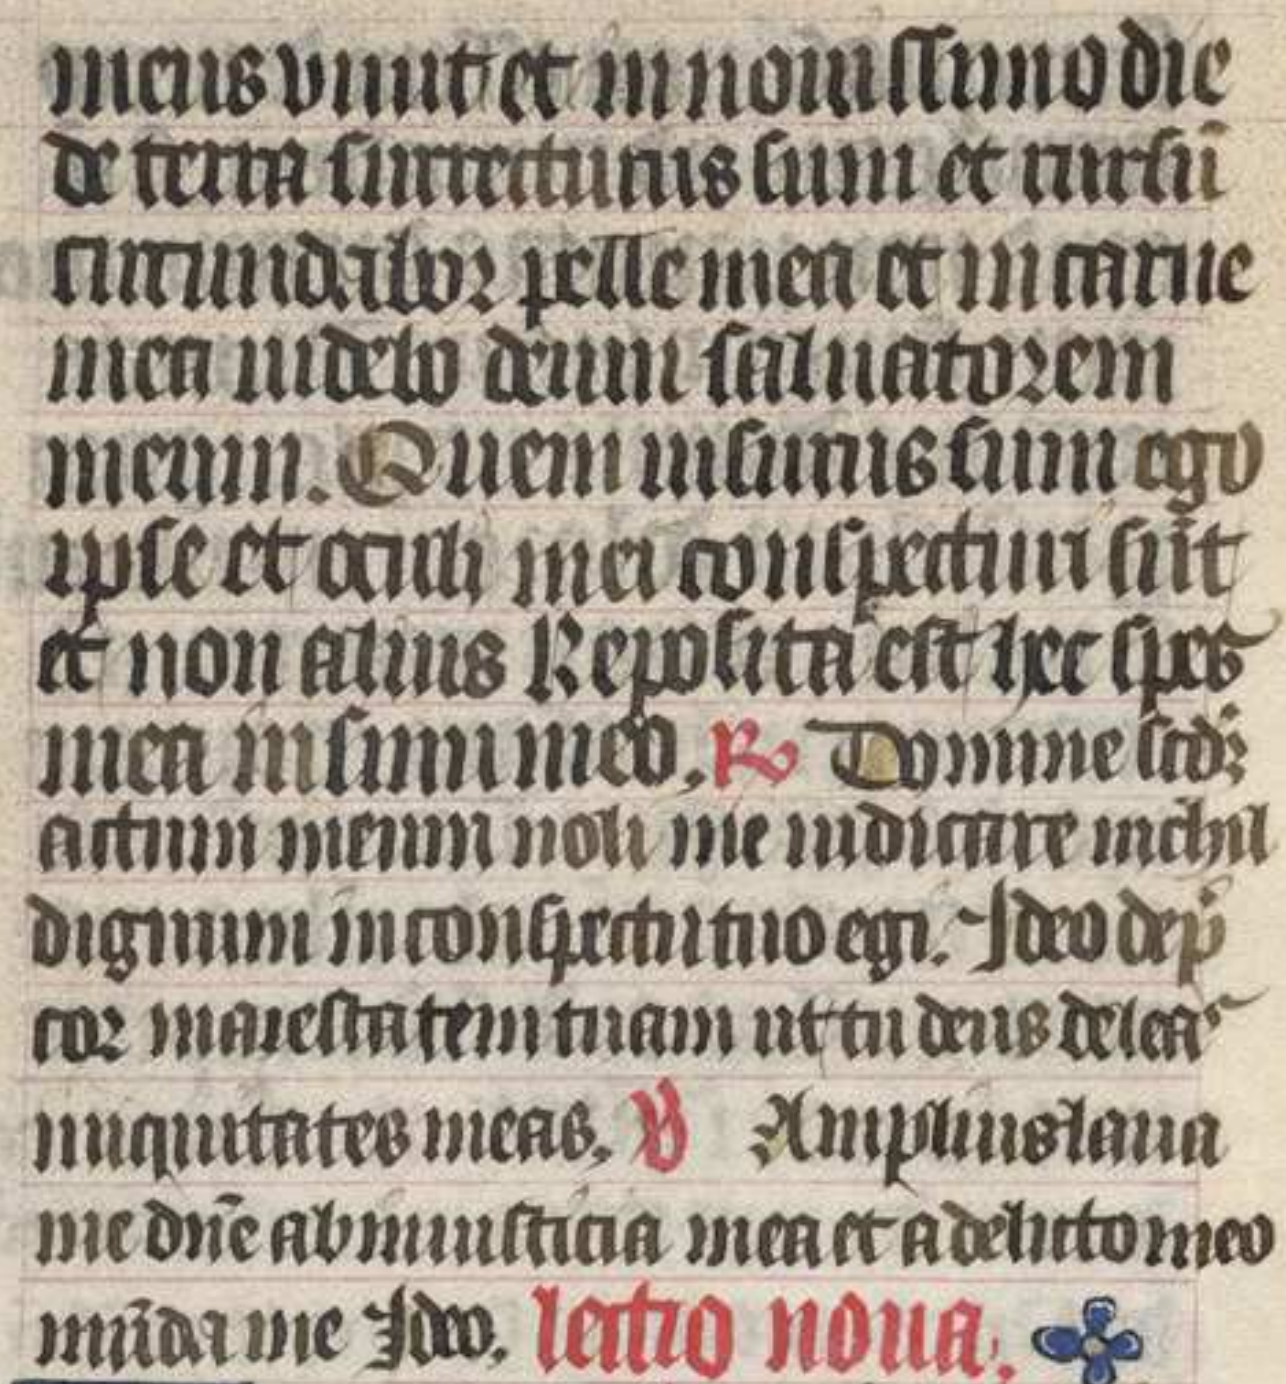 meus viuit et in nouissimo die
de terra surrecturus sum et rursū
circumdabor pelle mea et in carne
mea uidebo deum saluatorem
meum. Quem uisurus sum ego
ipse et oculi mei conspecturi sūt
et non alius Reposita est hec spes
mea in sinu meo. ℟ Domine scdꝫ
actum meum noli me iudicare nichil
dignum in conspectu tuo egi. Ideo dep̄
cor maiestatem tuam ut tu deus deleas
iniquitates meas. ℣ Amplius laua
me dn̄e ab iniusticia mea et a delicto meo
mūda me Ideo. lectio nona.